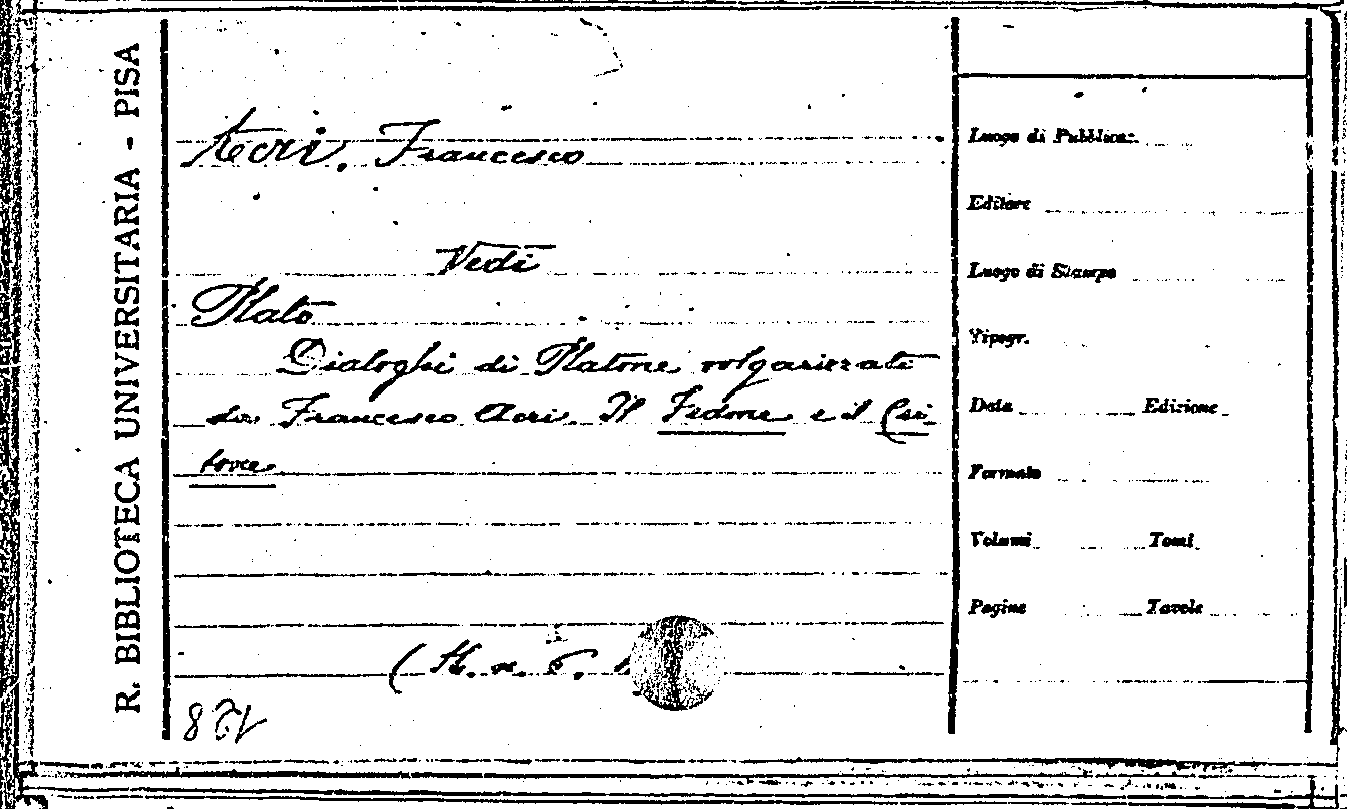 R. BIBLIOTECA UNIVERSITARIA - PISA
Acri, Francesco
Vedi
Plato
Dialoghi di Platone volgarizzati
da Francesco Acri. Il Fedone e il Cri-
tone.
Luogo di Pubblicaz.
Editore
Luogo di Stampa
Tipogr.
Data Edizione
Formato
Volumi Tomi
Pagine Tavole
128